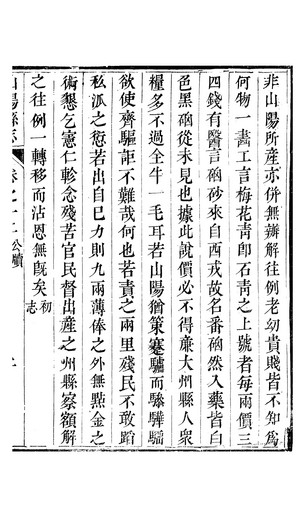 非山陽所產亦併無辦解往例老幼貴賤皆不知爲
何物一畵工言梅花靑卽石靑之上號者每兩價三
四錢有醫言硇砂來自西戎故名番硇然入藥皆白
色黑硇從未見也據此說價必不得亷大州縣人衆
糧多不過全牛一毛耳若山陽猶策蹇驢而驂驊騮
欲使齊驅詎不難哉何也若責之兩里殘民不敢蹈
私派之愆若出自己力則九兩薄俸之外無點金之
術懇乞憲仁軫念殘苦官民督出產之州縣察額解
之往例一轉移而沾恩無旣矣初志
山陽縣志
卷之十二 公牘